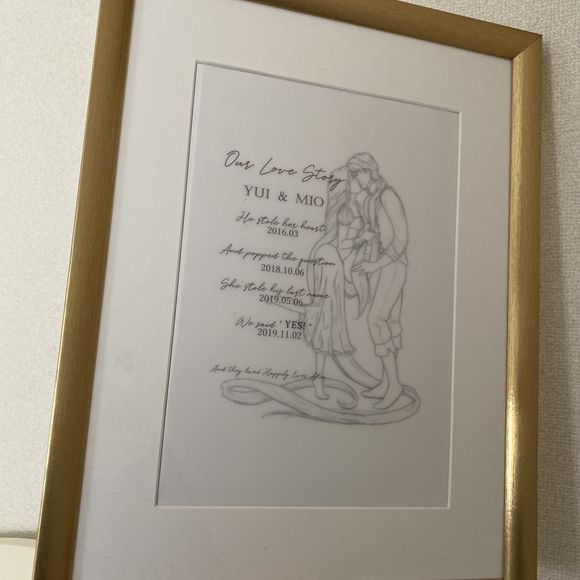 Our Love Story
YUI & MIO
He stole her heart
2016.03
And popped the question
2018.10.06
She stole his last name
2019.05.06
We said " YES! "
2019.11.02
And they lived Happily Ever After